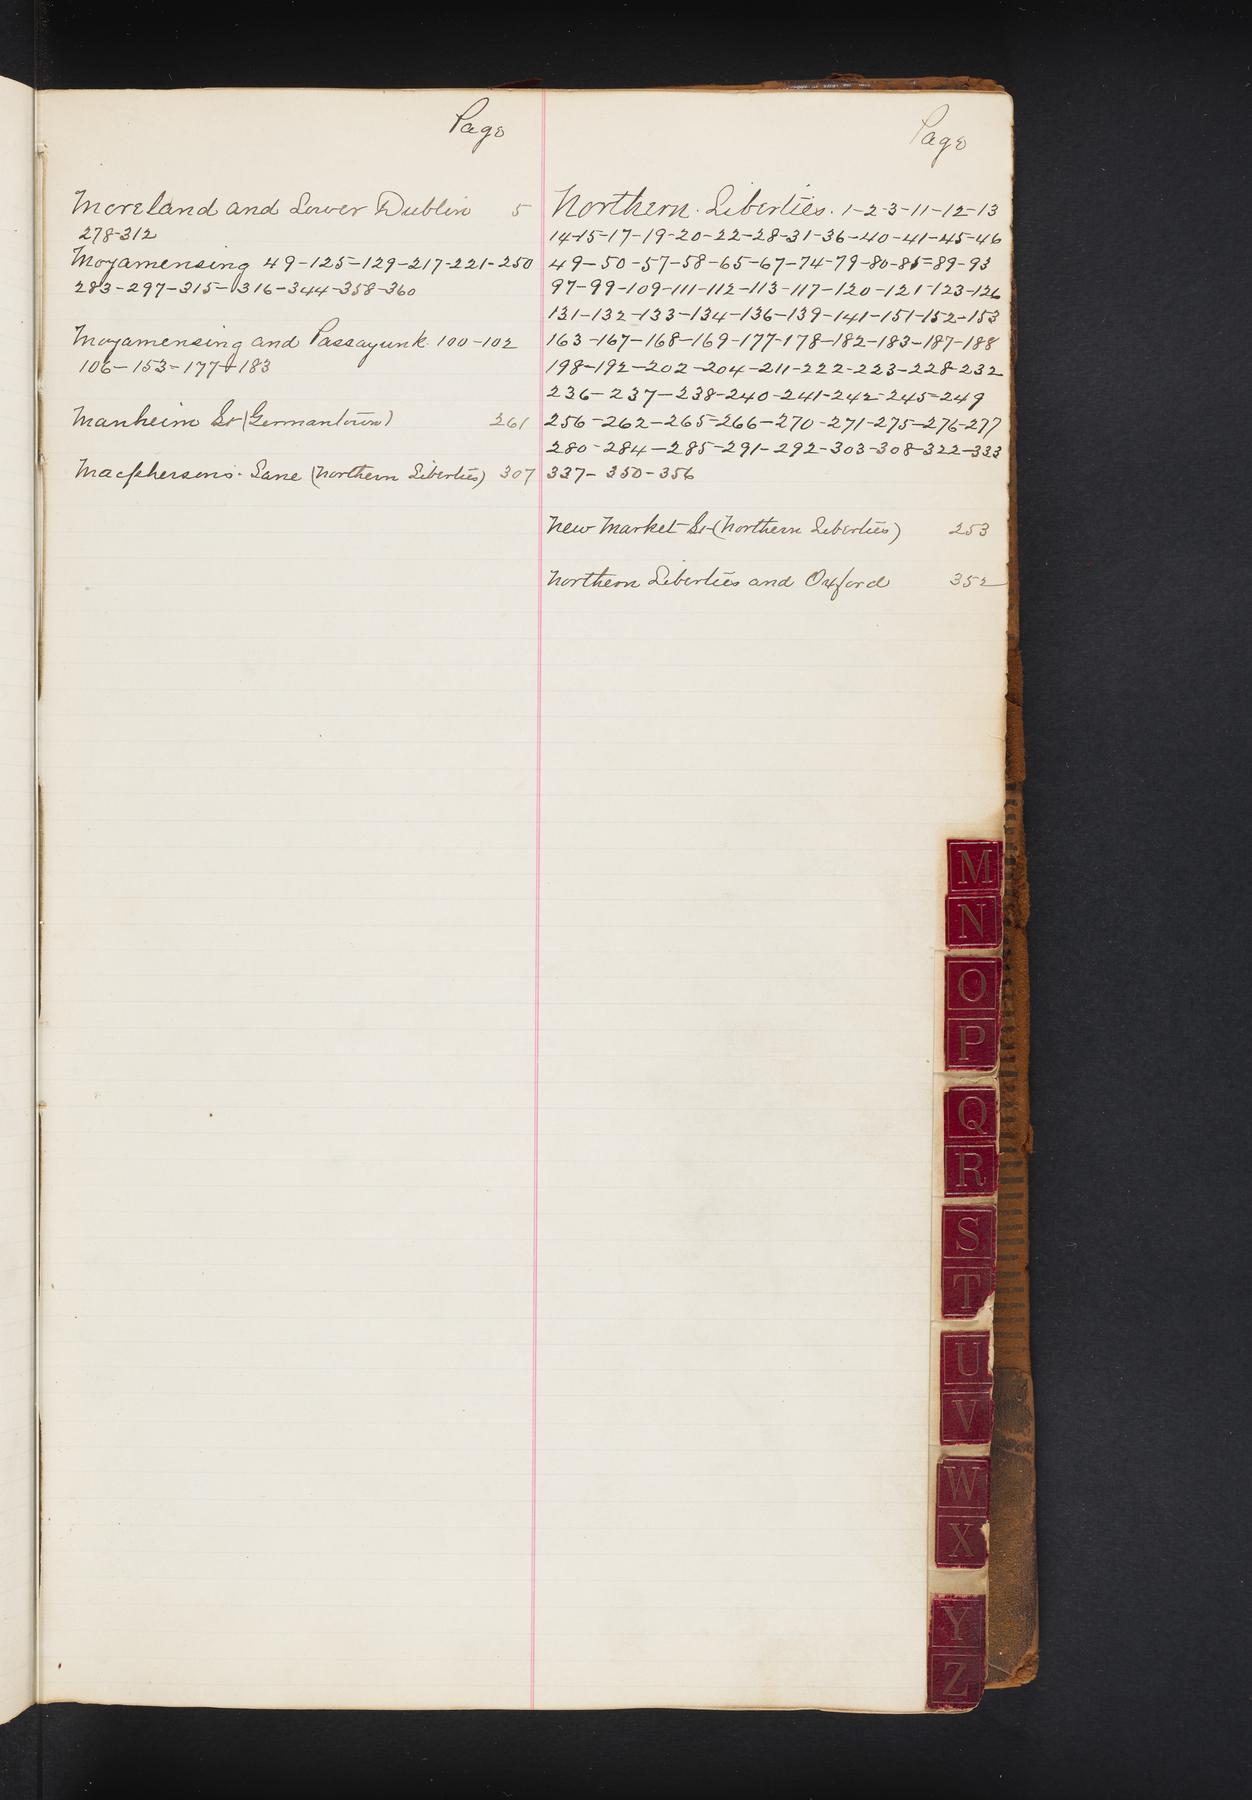 Page
Moreland and Lower Dublin 5
278-312
Moyamensing 49-125-129-217-221-250
283-297-315-316-344-358-360
Moyamensing and Passayunk 100-102
106-153-177-183
Manheim St (Germantown) 261
Macphersons Lane (Northern Liberties) 307
Page
Northern Liberties. 1-2-3-11-12-13
14-15-17-19-20-22-28-31-36-40-41-45-46
49-50-57-58-65-67-74-79-80-85-89-93
97-99-109-111-112-113-117-120-121-123-126
131-132-133-134-136-139-141-151-152-153
163-167-168-169-177-178-182-183-187-188
198-192-202-204-211-222-223-228-232
236-237-238-240-241-242-245-249
256-262-265-266-270-271-275-276-277
280-284-285-291-292-303-308-322-333
337-350-356
New Market St (Northern Liberties) 253
Northern Liberties and Oxford 352
M
N
O
P
Q
R
S
T
U
V
W
X
Y
Z